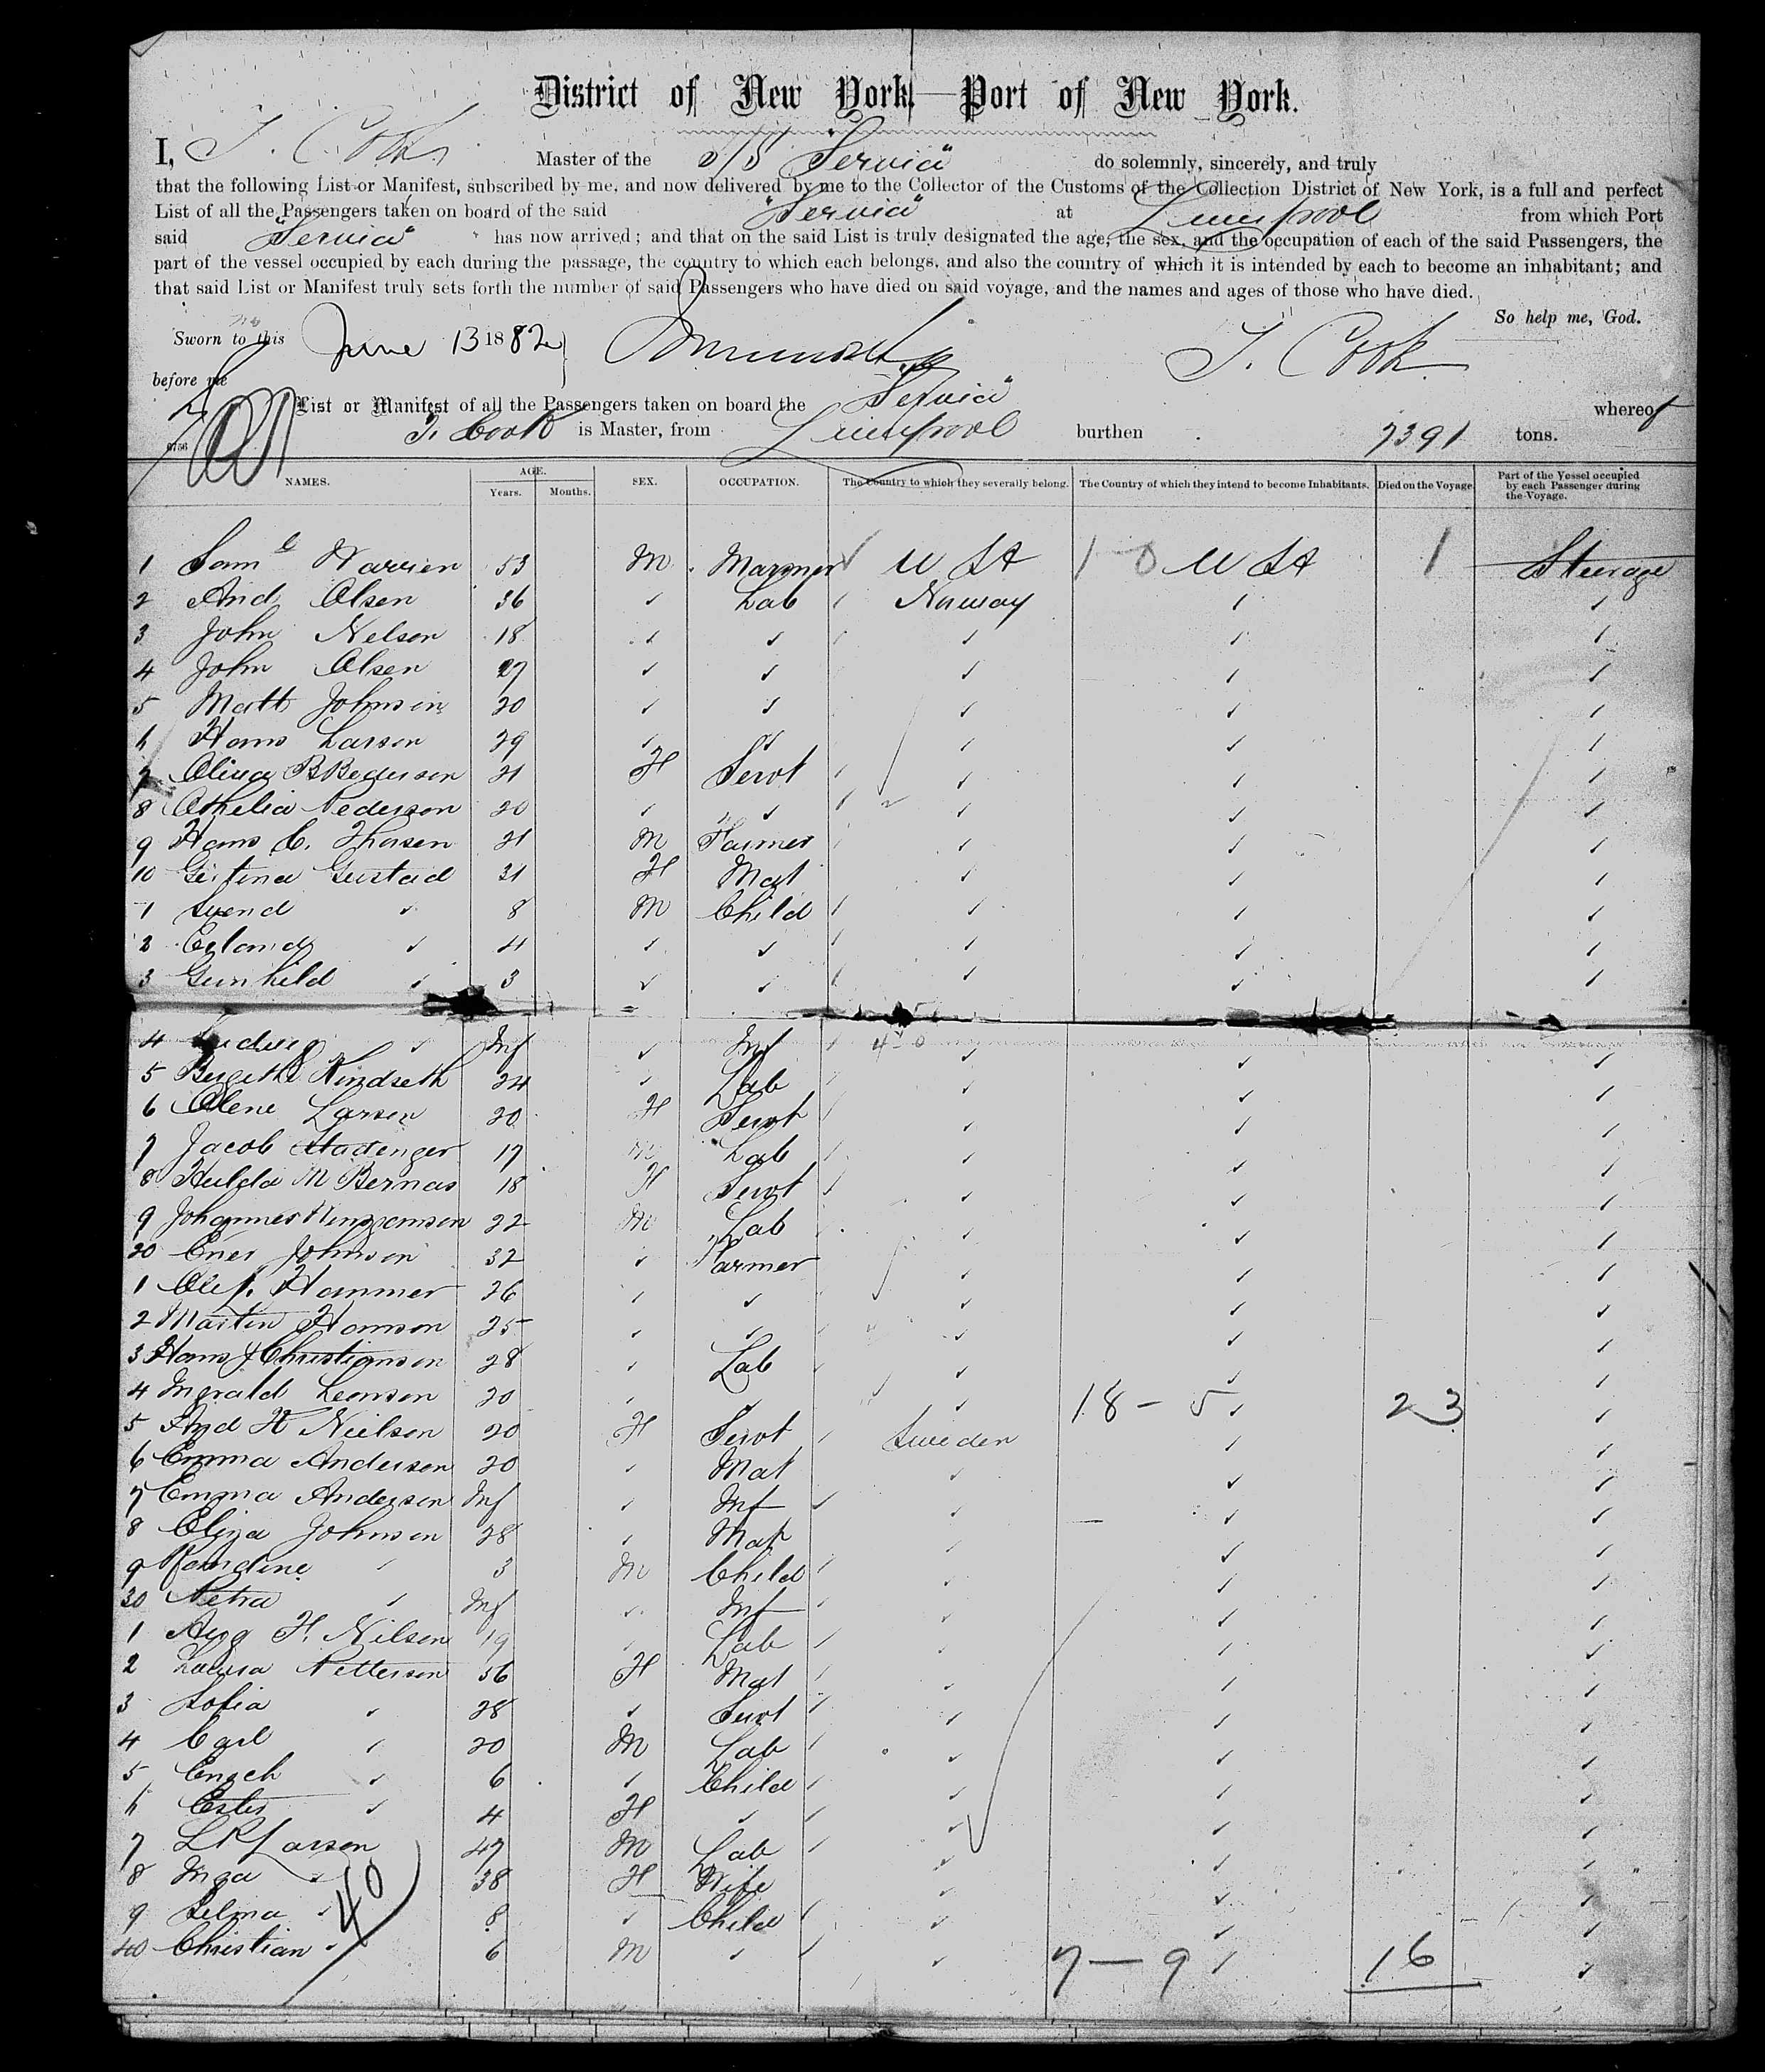 District of New York — Port of New York.
I, T. Cook Master of the S/S "Servia" do solemnly, sincerely, and truly
that the following List or Manifest, subscribed by me, and now delivered by me to the Collector of the Customs of the Collection District of New York, is a full and perfect
List of all the Passengers taken on board of the said "Servia" at Liverpool from which Port
said "Servia" has now arrived; and that on the said List is truly designated the age, the sex, and the occupation of each of the said Passengers, the
part of the vessel occupied by each during the passage, the country to which each belongs, and also the country of which it is intended by each to become an inhabitant; and
that said List or Manifest truly sets forth the number of said Passengers who have died on said voyage, and the names and ages of those who have died.
So help me, God.
Sworn to this June 13 1882 T. Cook
before me
List or Manifest of all the Passengers taken on board the "Servia" whereof
T. Cook is Master, from Liverpool burthen 7391 tons.
NAMES. AGE. Years. Months. SEX. OCCUPATION. The Country to which they severally belong. The Country of which they intend to become Inhabitants. Died on the Voyage. Part of the Vessel occupied by each Passenger during the Voyage.
1 Saml 53 M Mariner U St 1 0 U St 1 Steerage
2 And Olsen 36 ✓ Lab Norway ✓ ✓
3 John Nelson 18 ✓ ✓ ✓ ✓ ✓
4 John Olsen 27 ✓ ✓ ✓ ✓ ✓
5 Matt Johnson 20 ✓ ✓ ✓ ✓ ✓
6 Hans Larson 29 ✓ ✓ ✓ ✓ ✓
7 21 F Servt ✓ ✓ ✓
8 Pederson 20 ✓ ✓ ✓ ✓ ✓
9 Hans C. Thorsen 21 M Farmer ✓ ✓ ✓
10 Gustad 31 F Mat ✓ ✓ ✓
1 Svend ✓ 8 M Child ✓ ✓ ✓
2 ✓ 4 ✓ ✓ ✓ ✓ ✓
3 Gunhild ✓ 3 ✓ ✓ ✓ ✓ ✓
4 Ludvig ✓ Inf ✓ Inf 4-0 ✓ ✓ ✓
5 Kindseth 24 ✓ Lab ✓ ✓ ✓
6 Olene Larsen 20 F Servt ✓ ✓ ✓
7 Jacob 17 M Lab ✓ ✓ ✓
8 Hulda M Bernas 18 F Servt ✓ ✓ ✓
9 Johannes 22 M Lab ✓ ✓ ✓
20 Johnson 32 ✓ Farmer ✓ ✓ ✓
1 Hammer 26 ✓ ✓ ✓ ✓ ✓
2 Martin Hanson 25 ✓ ✓ ✓ ✓ ✓
3 Hans J Christianson 28 ✓ Lab ✓ ✓ ✓
4 20 ✓ ✓ ✓ 18 - 5 ✓ 23 ✓
5 And H Nielson 20 F Servt Sweden ✓ ✓
6 Emma Anderson 20 ✓ Mat ✓ ✓ ✓
7 Emma Anderson Inf ✓ Inf ✓ ✓ ✓
8 Eliza Johnson 28 ✓ Mat ✓ ✓ ✓
9 ✓ 3 M Child ✓ ✓ ✓
30 Petra ✓ Inf ✓ Inf ✓ ✓ ✓
1 Aug H. Nilson 19 ✓ Lab ✓ ✓ ✓
2 Petterson 56 F Mat ✓ ✓ ✓
3 Sofia ✓ 28 ✓ Servt ✓ ✓ ✓
4 Carl ✓ 20 M Lab ✓ ✓ ✓
5 Enoch ✓ 6 ✓ Child ✓ ✓ ✓
6 Ester ✓ 4 F ✓ ✓ ✓ ✓
7 L P Larson 47 M Lab ✓ ✓ ✓
8 Inga ✓ 38 F Wife ✓ ✓ ✓
9 Selma ✓ 8 ✓ Child ✓ ✓ ✓
40 Christian ✓ 6 M ✓ ✓ 7 - 9 ✓ 16 ✓
40